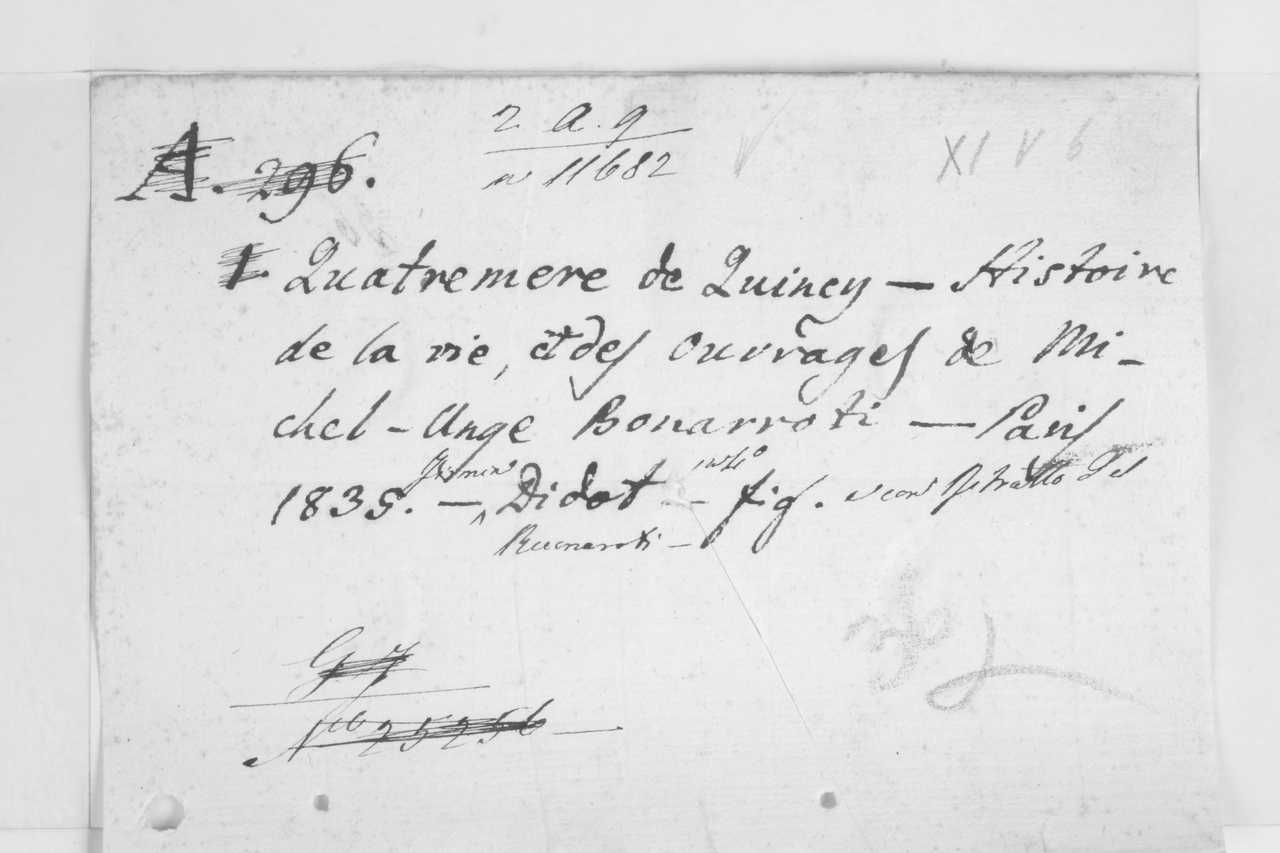 2. a. 9
n 11682
XI V 6
A. 296.
1. Quatremere de Quincy — Histoire
de la vie, et des ouvrages de Mi-
chel-Ange Bonarroti — Paris
1835. — Firmin Didot — in 4º fig. e con Ritratto del
Buonaroti —
G 7
Nº 25256 —